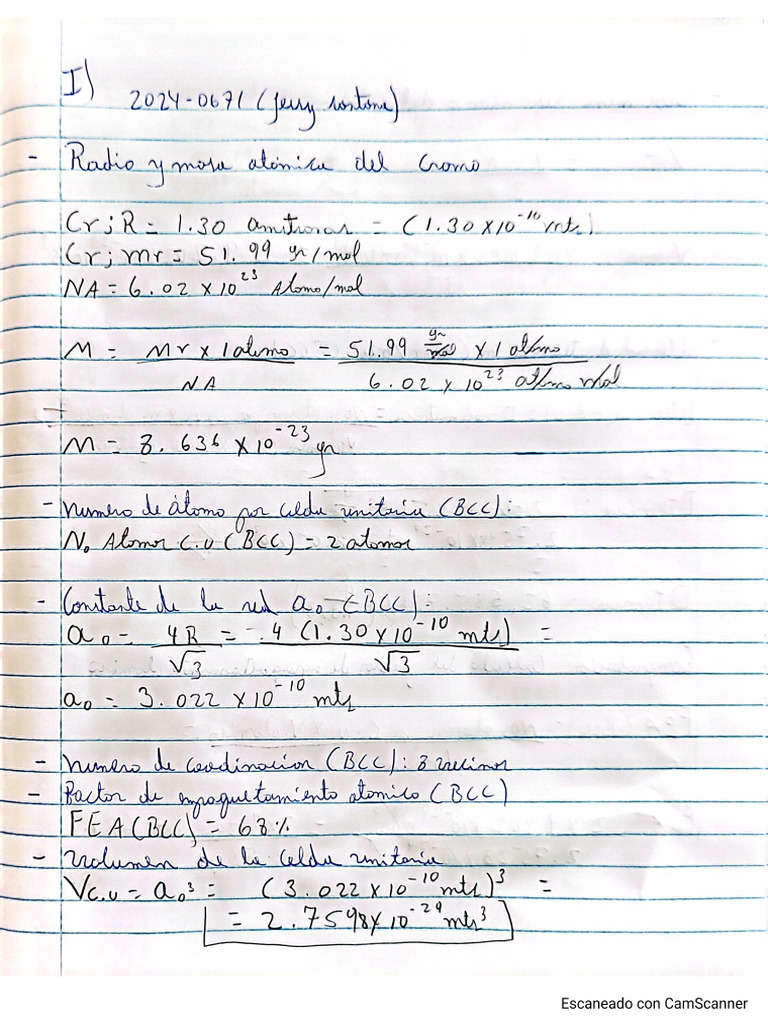 I)
2024-0671 (Jerry
- Radio y masa atómica del Cromo
Cr; R = 1.30 = (1.30 x 10^-10 mts)
Cr; mr = 51.99 gr/mol
NA = 6.02 x 10^23 Atomo/mol
M = Mr x 1 atomo / NA = 51.99 gr/mol x 1 atomo / 6.02 x 10^23 atomo mol
M = 8.636 x 10^-23 gr
- Numero de átomo por celda unitaria (BCC):
No Atomos C.U (BCC) = 2 atomos
- Constante de la red a₀ (BCC):
a₀ = 4R / √3 = 4 (1.30 x 10^-10 mts) / √3 =
a₀ = 3.022 x 10^-10 mts
- Numero de coordinacion (BCC): 8 vecinos
- Factor de empaquetamiento atomico (BCC)
FEA (BCC) = 68%
- Volumen de la celda unitaria
Vc.u = a₀³ = (3.022 x 10^-10 mts)³ =
= 2.7598 x 10^-29 mts³
Escaneado con CamScanner